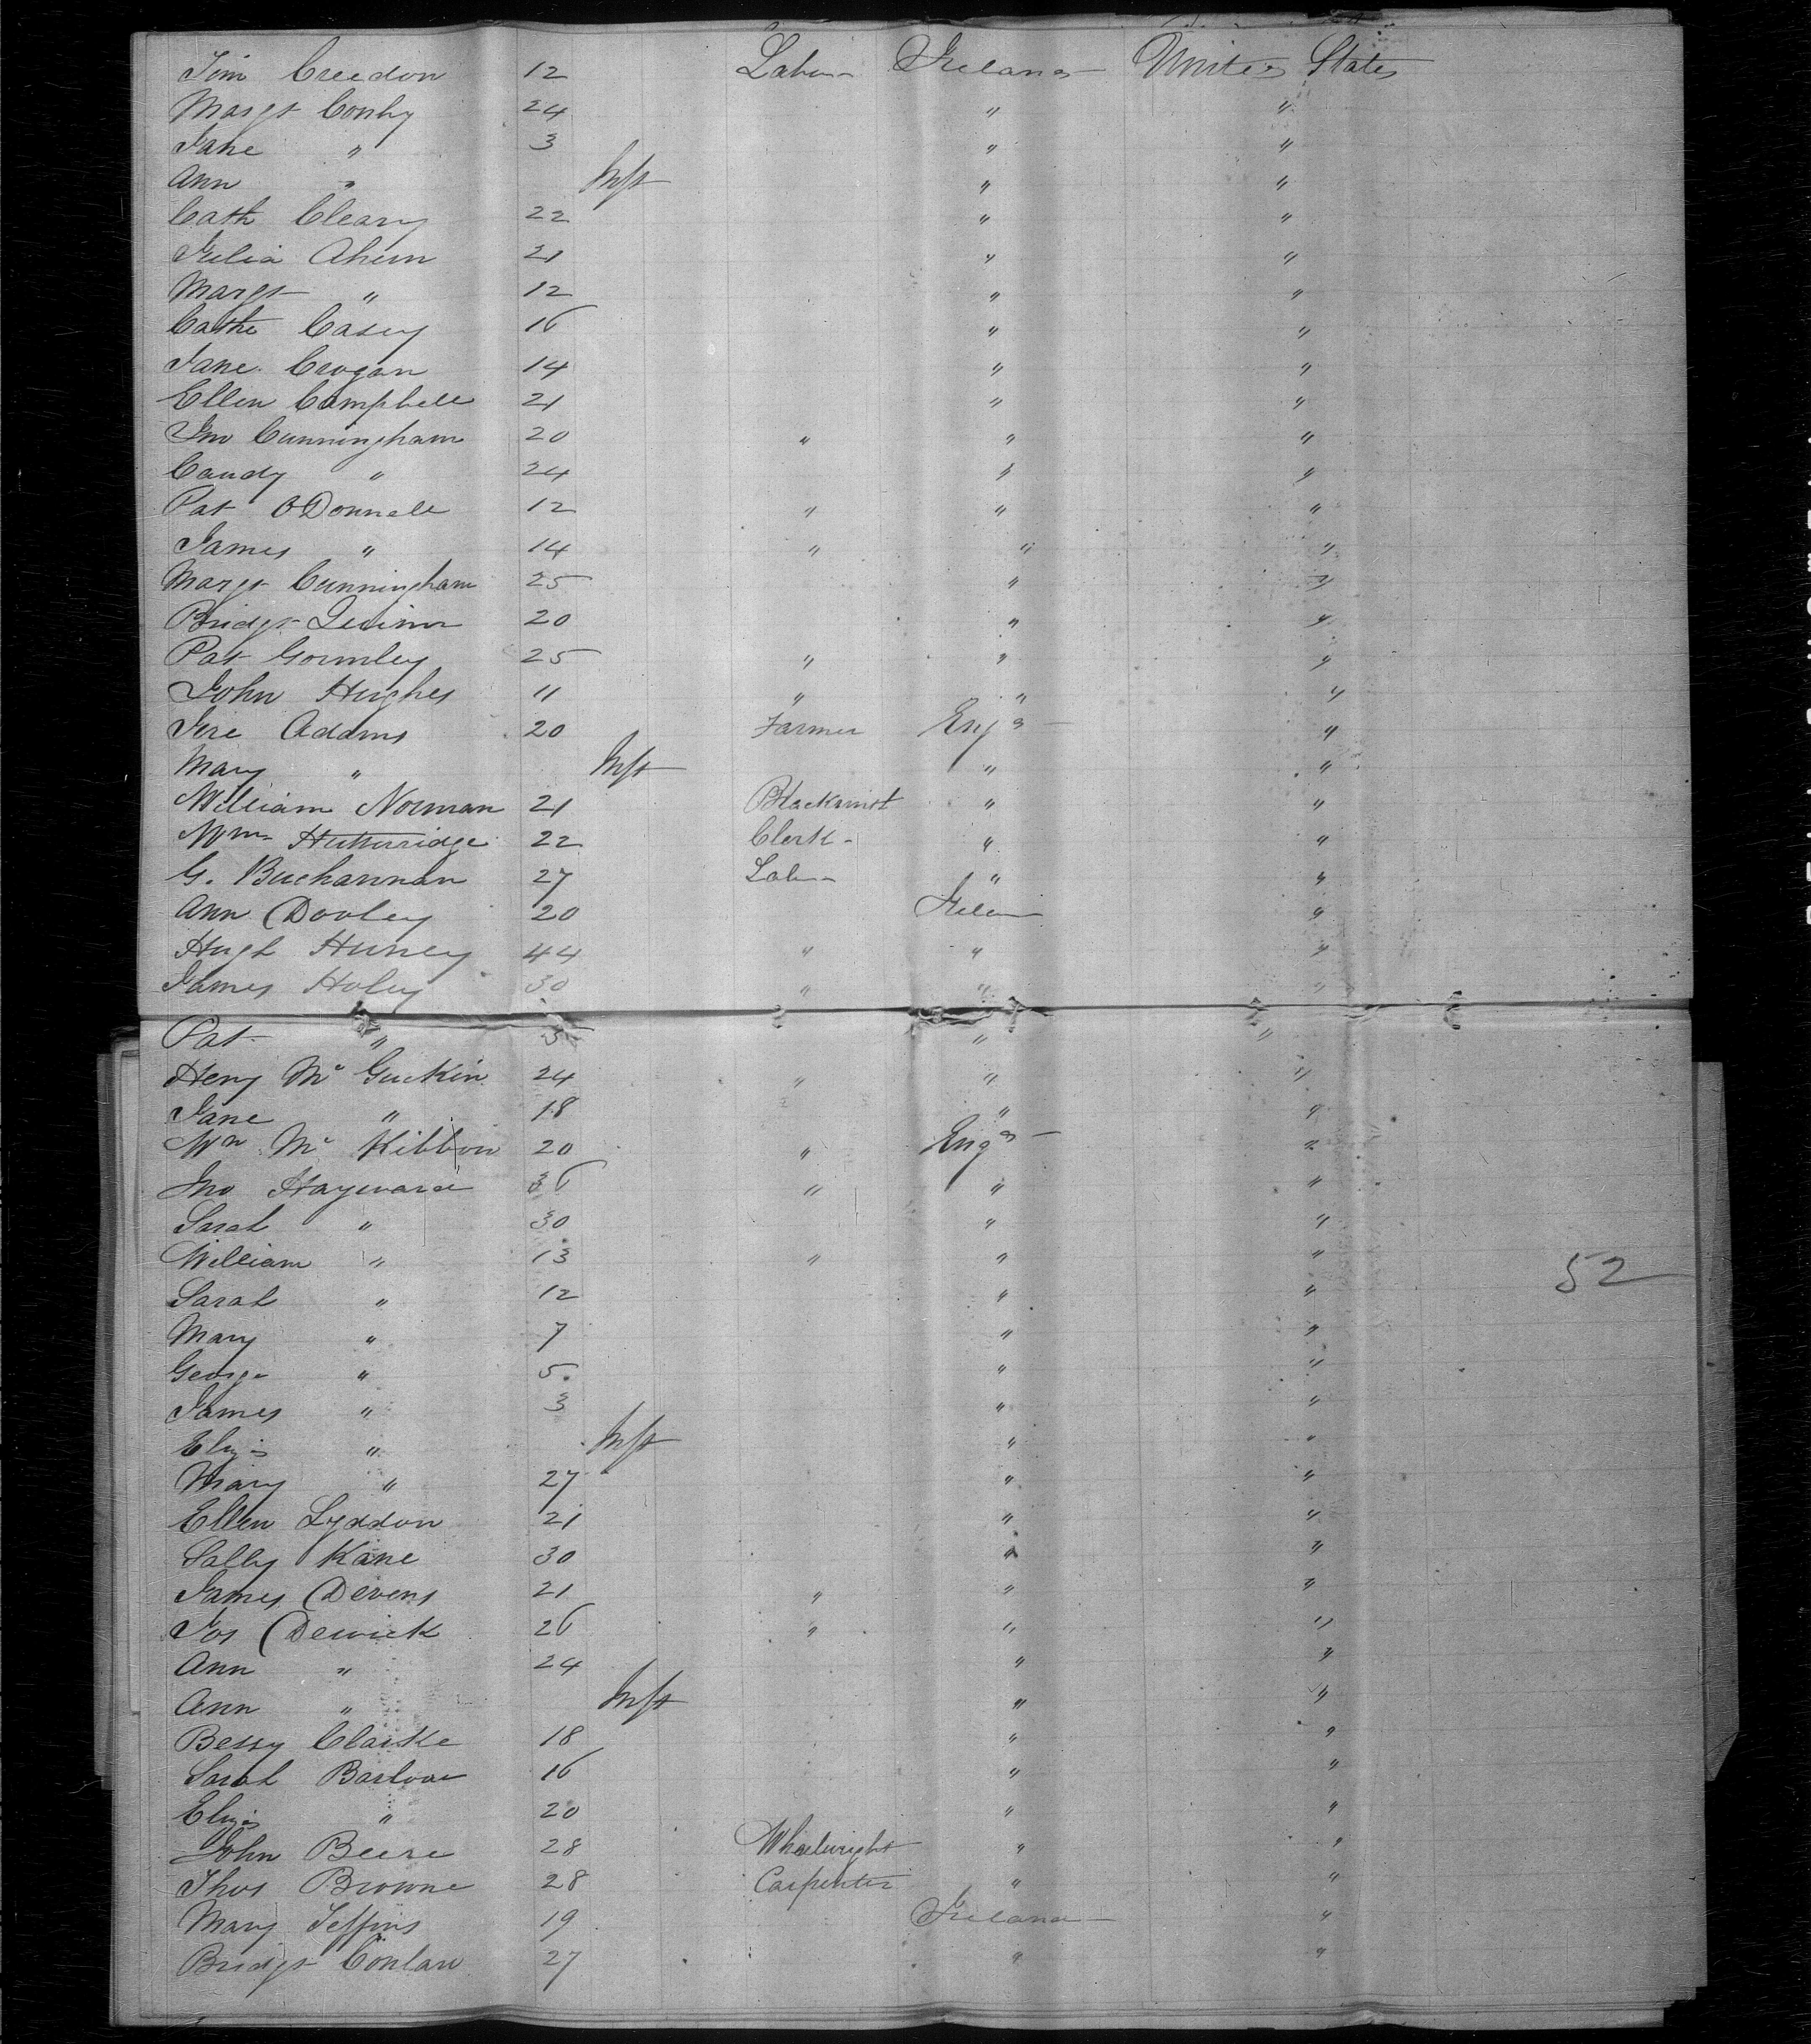 Tim Creedon 12 Labr Ireland United States
Margt Conby 24 " "
Jane " 3 " "
Ann " Inft " "
Cath Cleary 22 " "
Julia Ahern 21 " "
Margt " 12 " "
Cathe Casey 16 " "
Jane Crogan 14 " "
Ellen Campbell 21 " "
Jno Cunningham 20 " " "
Candy " 24 " "
Pat O'Donnell 12 " " "
James " 14 " " "
Margt Cunningham 25 " "
Bridgt Quinn 20 " "
Pat Gormley 25 " " "
John Hughes 11 " " "
Jere Adams 20 Farmer Engd "
Mary " Inft " "
William Norman 21 Blacksmit " "
Wm Hutterridge 22 Clerk " "
G. Buchannan 27 Labr " "
Ann Dooley 20 Irelan "
Hugh Huney 44 " " "
James Holey 30 " " "
Pat " 5 " "
Heny Mc Guckin 24 " " "
Jane " 18 " "
Wm Mc Kibbon 20 " Engd "
Jno Hayward 36 " " "
Sarah " 30 " "
William " 13 " " "
Sarah " 12 " "
Mary " 7 " "
George " 5 " "
James " 3 " "
Eliza " Inft " "
Mary " 27 " "
Ellen Lyddon 21 " "
Sally Kane 30 " "
James Devens 21 " " "
Jos Dewick 26 " " "
Ann " 24 " "
Ann " Inft " "
Bessy Clarke 18 " "
Sarah Barlow 16 " "
Eliza " 20 " "
John Beere 28 Wheelwright " "
Thos Browne 28 Carpenter " "
Mary Jeffins 19 Ireland "
Bridgt Conlan 27 " "
52